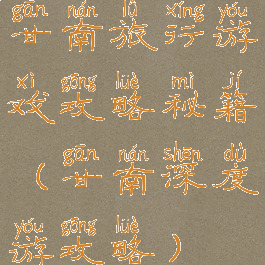 gān nán lǚ xíng yóu
甘南旅行游
xì gōng lüè mì jí
戏攻略秘籍
gān nán shēn dù
(甘南深度
yóu gōng lüè
游攻略)